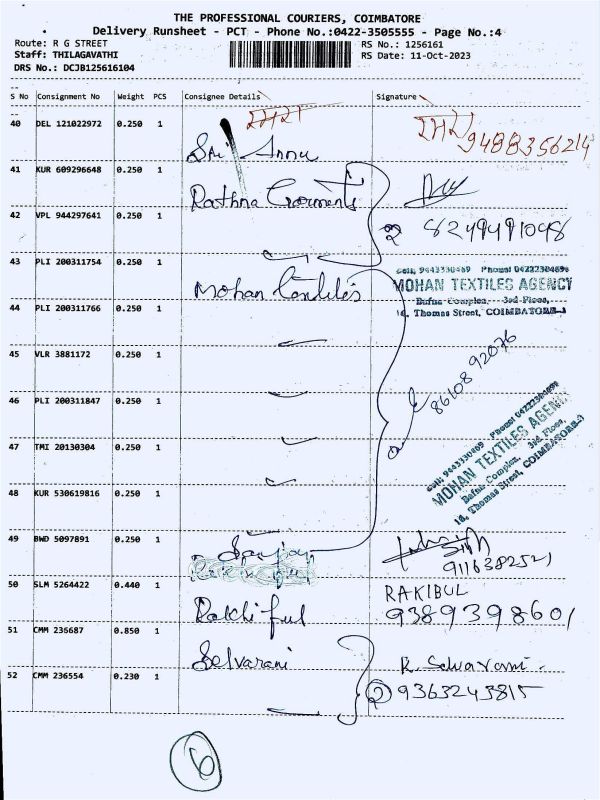 THE PROFESSIONAL COURIERS, COIMBATORE
Delivery Runsheet - PCT - Phone No.:0422-3505555 - Page No.:4
Route: R G STREET
RS No.: 1256161
Staff: THILAGAVATHI
RS Date: 11-Oct-2023
DRS No.: DCJB125616104
S No Consignment No Weight PCS Consignee Details Signature
40 DEL 121022972 0.250 1 Sri Annu 9488356214
41 KUR 609296648 0.250 1 Rathna Garments
42 VPL 944297641 0.250 1 2 8249491048
43 PLI 200311754 0.250 1 Mohan Textiles
Cell: 9443330469 Phone: 04222304696
MOHAN TEXTILES AGENCY
Bafna Complex, 3rd Floor,
16, Thomas Street, COIMBATORE-1
44 PLI 200311766 0.250 1
45 VLR 3881172 0.250 1
86108 92076
46 PLI 200311847 0.250 1
Cell: 9443330469 Phone: 04222304696
MOHAN TEXTILES AGENCY
Bafna Complex, 3rd Floor,
16, Thomas Street, COIMBATORE-1
47 TMI 20130304 0.250 1
48 KUR 530619816 0.250 1
49 BWD 5097891 0.250 1 Sanjay
9116382521
50 SLM 5264422 0.440 1 Rakhi ful RAKIBUL
9389398601
51 CMM 236687 0.850 1 Selvarani R. Selvarani.
52 CMM 236554 0.230 1 2 9363243815
6